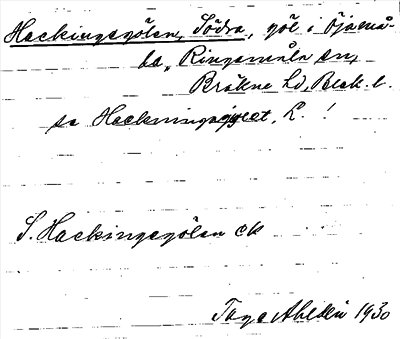 Hackingsgölen, Södra, göl i Öjasmå-
la, Ringamåla sn,
Bräkne hd, Blek. l.
se Hackningagyeet, L. !
S. Hackingsgölen ek
Tage Ahldén 1930